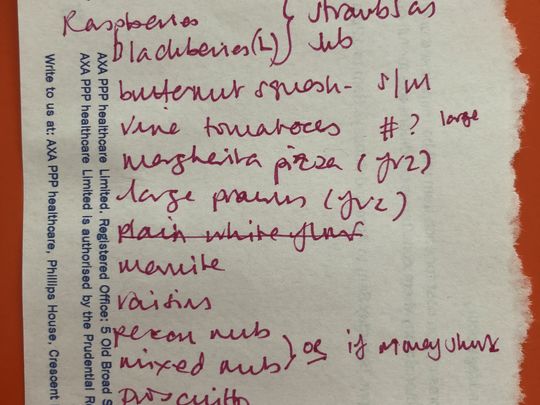 Raspberries } strawbs as
blackberries (L) } sub
butternut squash - s/m
vine tomatoes # ? large
margherita pizza (frz)
large prawns (frz)
plain white flour
marmite
raisins
pecan nuts } or if money short
mixed nuts }
Proscuitto
AXA PPP healthcare Limited. Registered Office: 5 Old Broad S
AXA PPP healthcare Limited is authorised by the Prudential Re
Write to us at: AXA PPP healthcare, Phillips House, Crescent